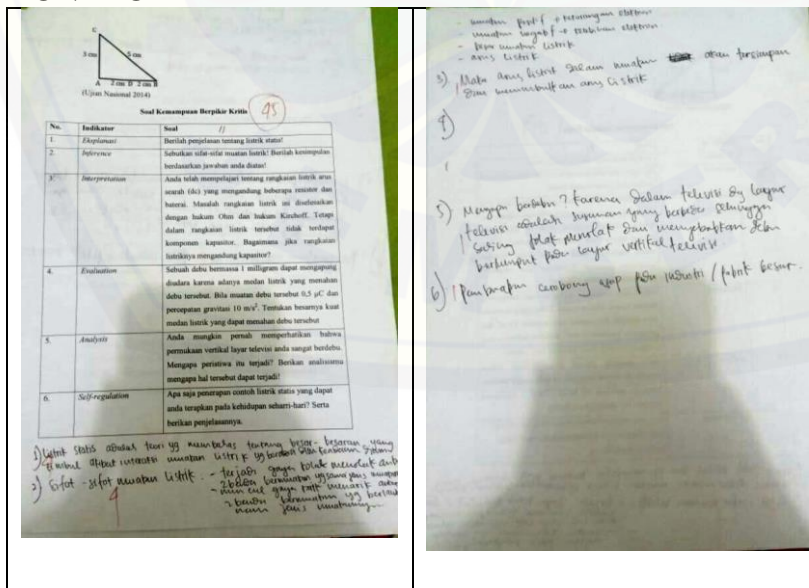 C
3 cm
5 cm
A 2 cm D 2 cm B
(Ujian Nasional 2014)
Soal Kemampuan Berpikir Kritis
No. Indikator Soal
1. Eksplanasi Berilah penjelasan tentang listrik statis!
2. Inference Sebutkan sifat-sifat muatan listrik! Berilah kesimpulan
berdasarkan jawaban anda diatas!
3. Interpretation Anda telah mempelajari tentang rangkaian listrik arus
searah (dc) yang mengandung beberapa resistor dan
baterai. Masalah rangkaian listrik ini diselesaikan
dengan hukum Ohm dan hukum Kirchoff. Tetapi
dalam rangkaian listrik tersebut tidak terdapat
komponen kapasitor. Bagaimana jika rangkaian
listriknya mengandung kapasitor?
4. Evaluation Sebuah debu bermassa 1 milligram dapat mengapung
diudara karena adanya medan listrik yang menahan
debu tersebut. Bila muatan debu tersebut 0,5 μC dan
percepatan gravitasi 10 m/s². Tentukan besarnya kuat
medan listrik yang dapat menahan debu tersebut
5. Analysis Anda mungkin pernah memperhatikan bahwa
permukaan vertikal layar televisi anda sangat berdebu.
Mengapa peristiwa itu terjadi? Berikan analisismu
mengapa hal tersebut dapat terjadi?
6. Self-regulation Apa saja penerapan contoh listrik statis yang dapat
anda terapkan pada kehidupan sehari-hari? Serta
berikan penjelasannya.
1) Listrik statis adalah teori yg membahas tentang besar-besaran yang
timbul akibat interaksi muatan listrik yg berada dlm
2) Sifat-sifat muatan listrik : - terjadi gaya tolak menolak
2 benda bermuatan yg
gaya tarik menarik
2 benda bermuatan yg
jenis muatannya
- muatan positif → kekurangan elektron
- muatan negatif → kelebihan elektron
- muatan listrik
- arus listrik
3) Maka arus listrik dalam muatan akan tersimpan
dan menimbulkan arus listrik
4)
5) Mengapa berdebu? karena dalam televisi dg layar
televisi adalah susunan yang berbeda sehingga
saling tolak menolak dan menyebabkan debu
berkumpul pada layar vertikal televisi.
6) cerobong asap pada industri / pabrik besar.